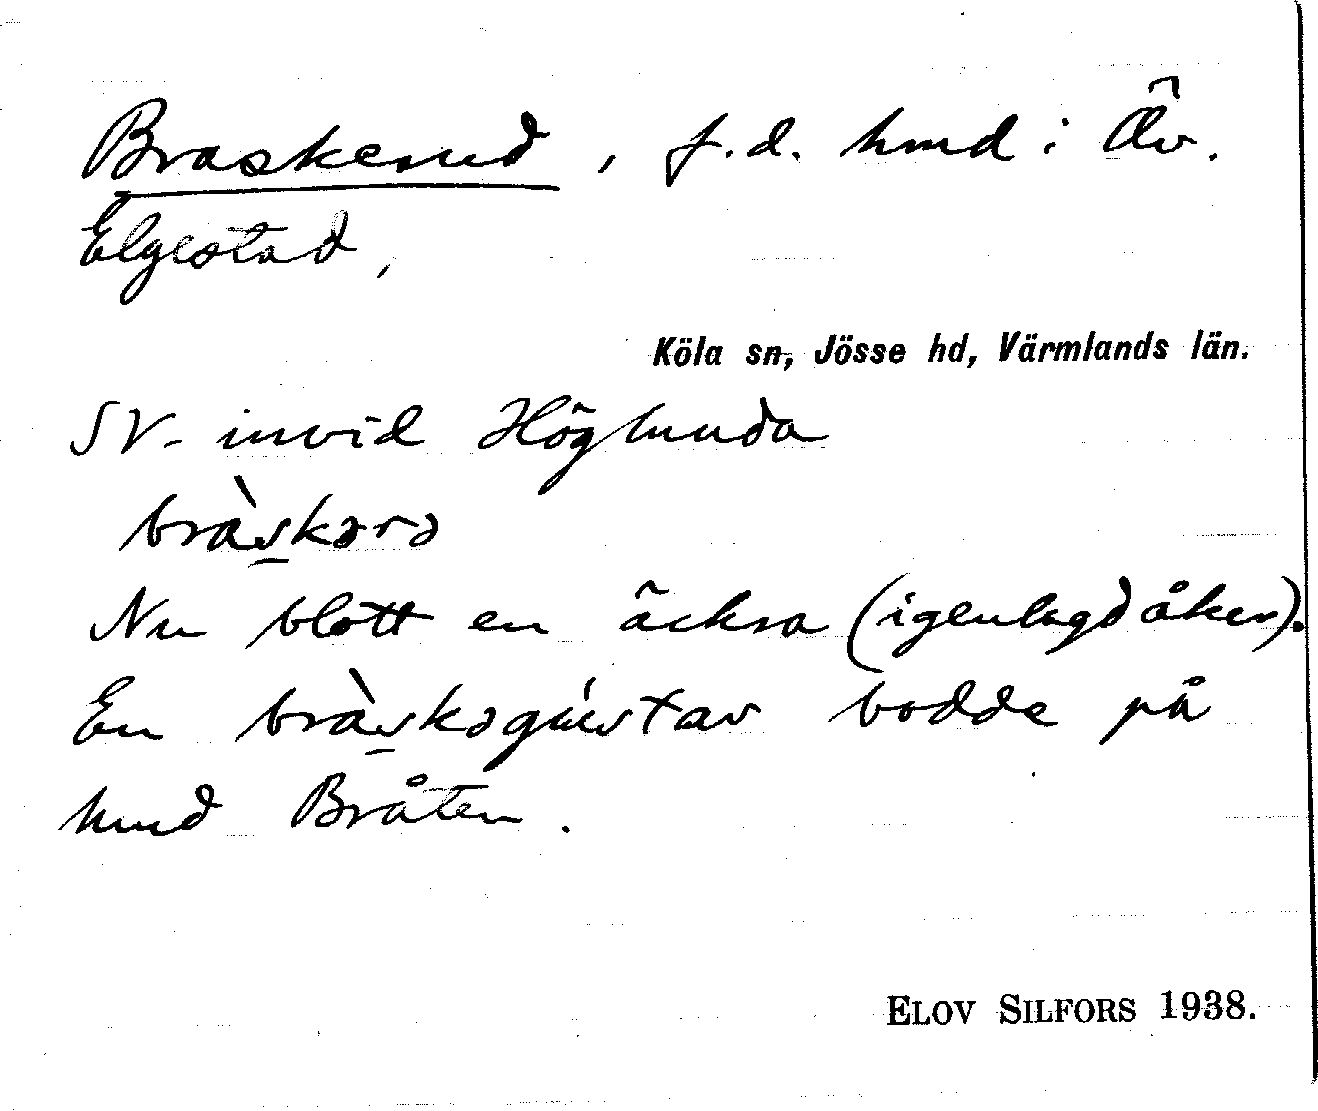 Braskerud, f.d. hmd i Öv.
Elgestad,
Köla sn, Jösse hd, Värmlands län.
SV- invid Höglunda
bràskərə
Nu blott en äckra (igenlagd åker).
En bràskəgústav bodde på
hmd Bråten.
ELOV SILFORS 1938.